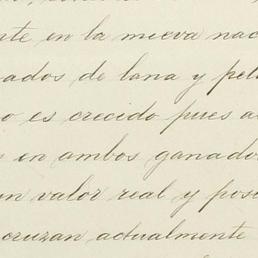 nte en la nueva nac
ados de lana y pel
o es crecido pues a
en ambos ganado
un valor real y pose
cruzan actualmente